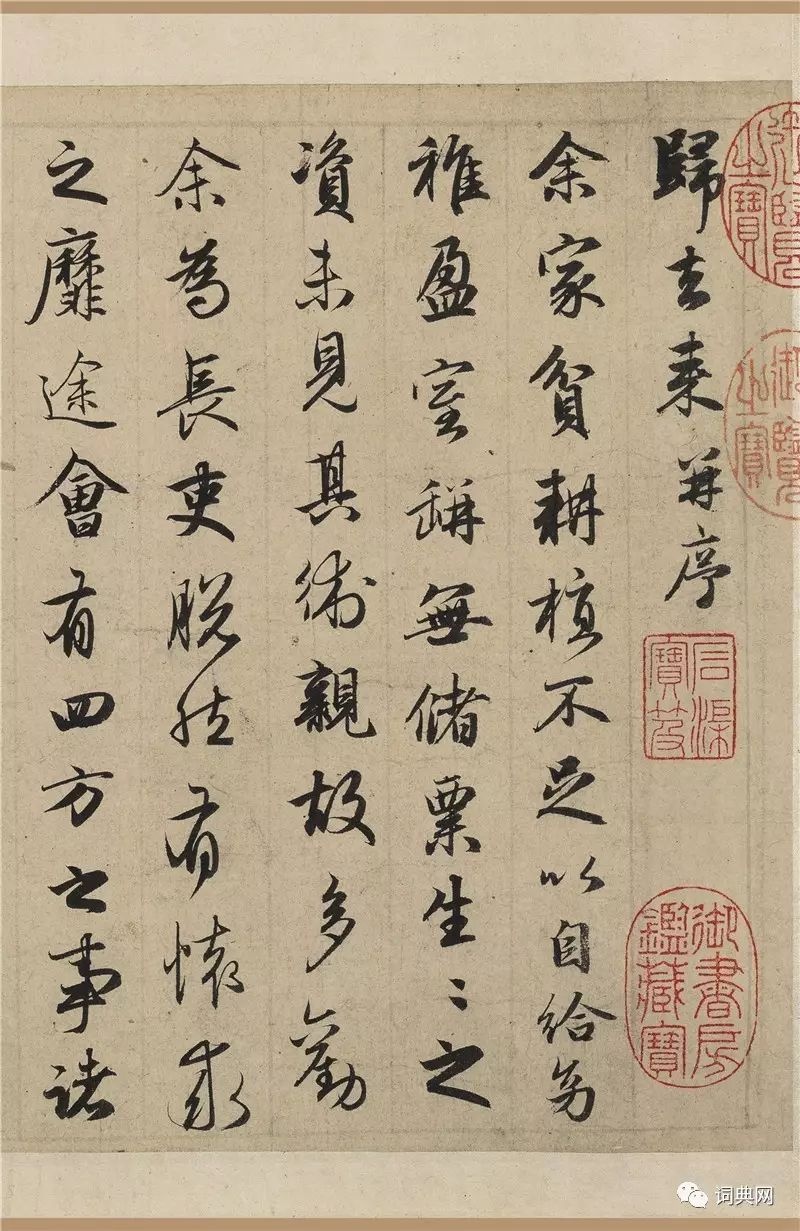 歸去来并序
余家貧耕植不足以自給幼
稚盈室缾無儲粟生〻之
資未見其術親故多勸
余為長吏脫然有懷求
之靡途會有四方之事諸
御覽之寶
石渠寶笈
御書房鑑藏寶
词典网